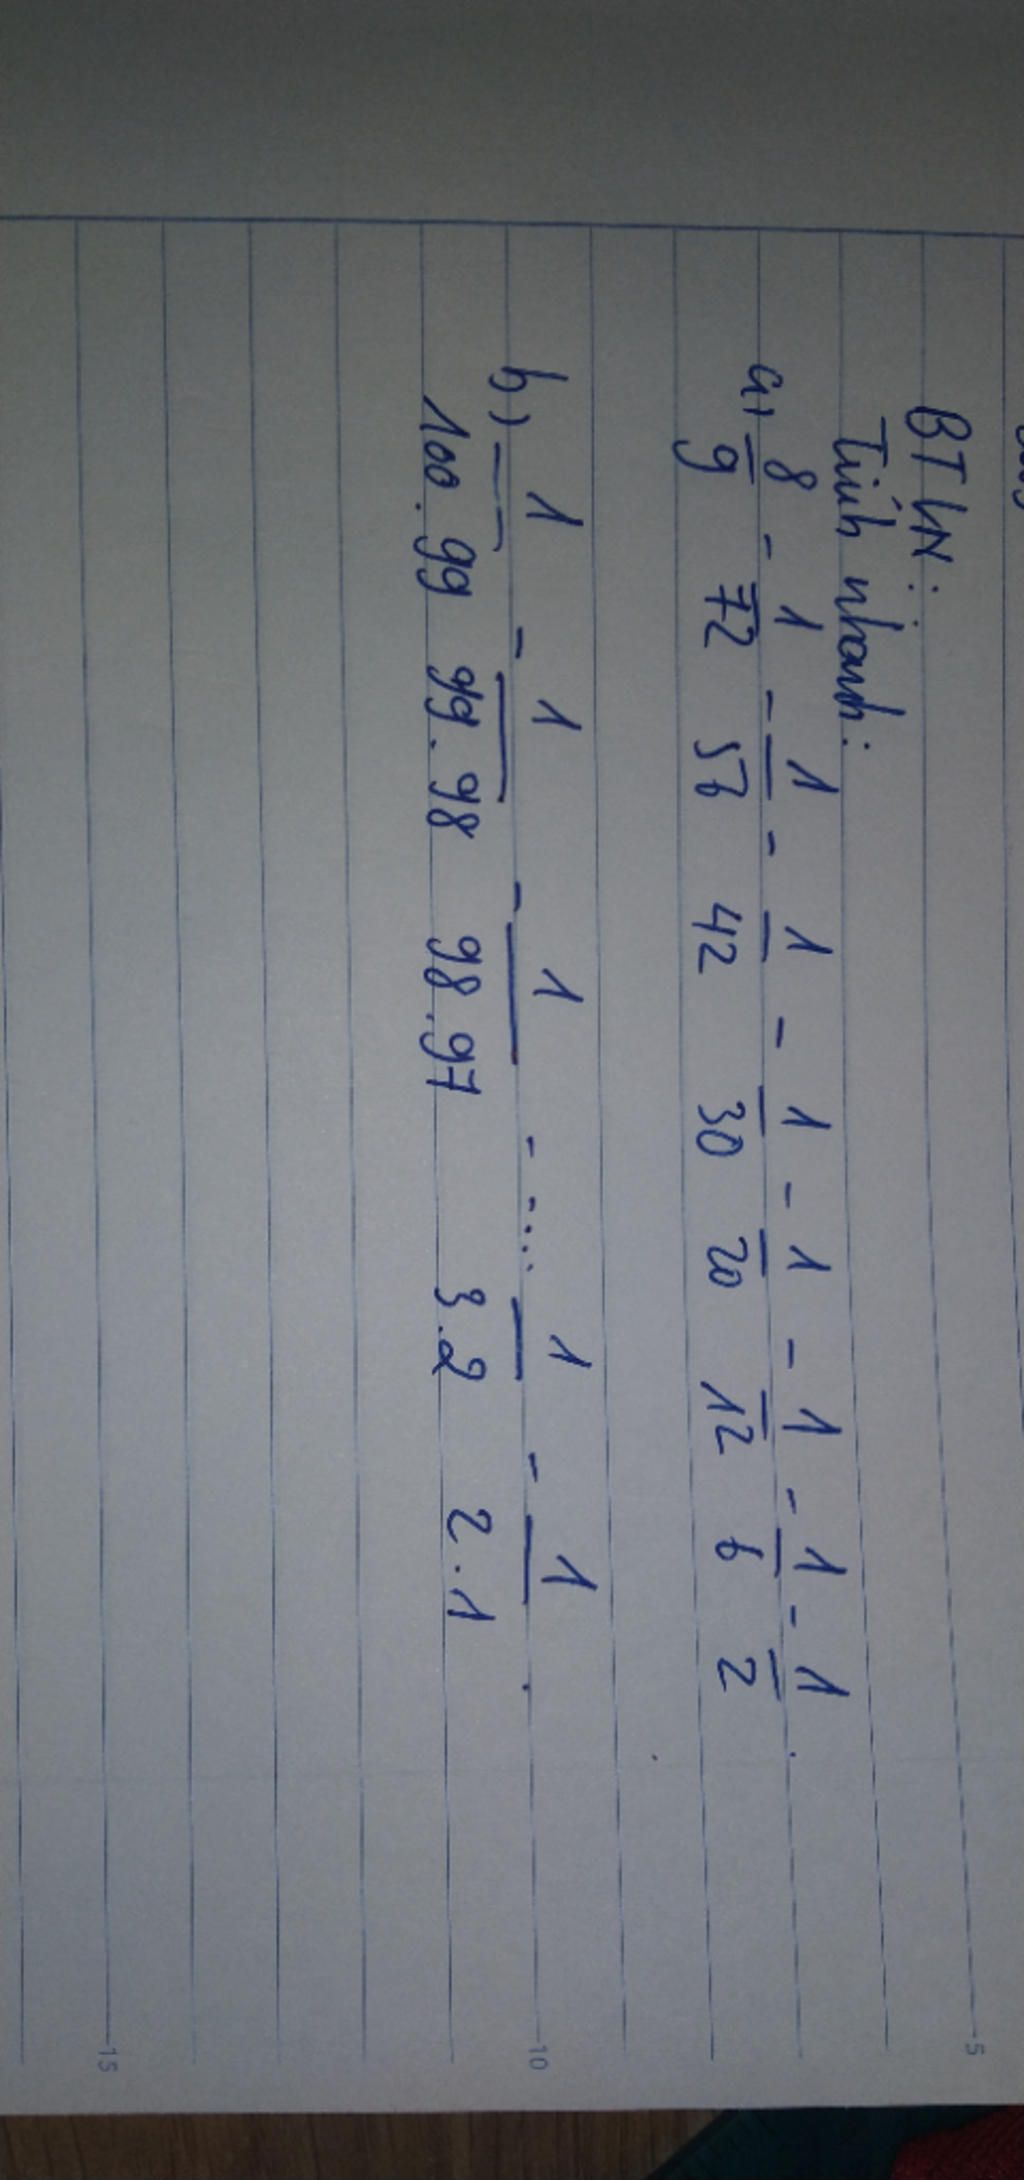 BTVN:
Tính nhanh:
a) 8/9 - 1/72 - 1/56 - 1/42 - 1/30 - 1/20 - 1/12 - 1/6 - 1/2.
b) 1/100.99 - 1/99.98 - 1/98.97 - ... 1/3.2 - 1/2.1.
5
10
15